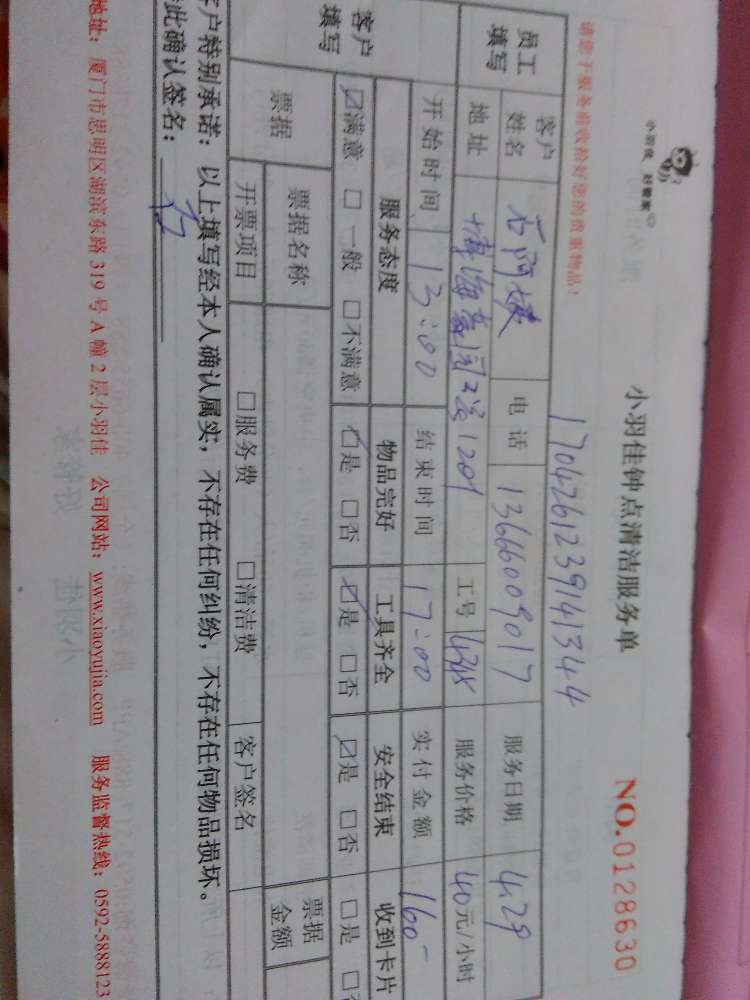 小羽佳 好管家
小羽佳钟点清洁服务单 NO.0128630
1704261239141344
请您于服务前收拾好您的贵重物品！
员工填写 客户姓名 石阿 电话 13666009017 服务日期 4.29
地址 海豪园 1201 工号 服务价格 40元/小时
开始时间 13:00 结束时间 17:00 实付金额 160-
客户填写 服务态度 物品完好 工具齐全 安全结束 收到卡片
☑满意 □一般 □不满意 ☑是 □否 ☑是 □否 ☑是 □否 □是 □否
票据 票据名称 票据金额
开票项目 □服务费 □清洁费 客户签名
客户特别承诺：以上填写经本人确认属实，不存在任何纠纷，不存在任何物品损坏。
此确认签名：
地址：厦门市思明区湖滨东路319号A幢2层小羽佳 公司网站：www.xiaoyujia.com 服务监督热线：0592-5888123